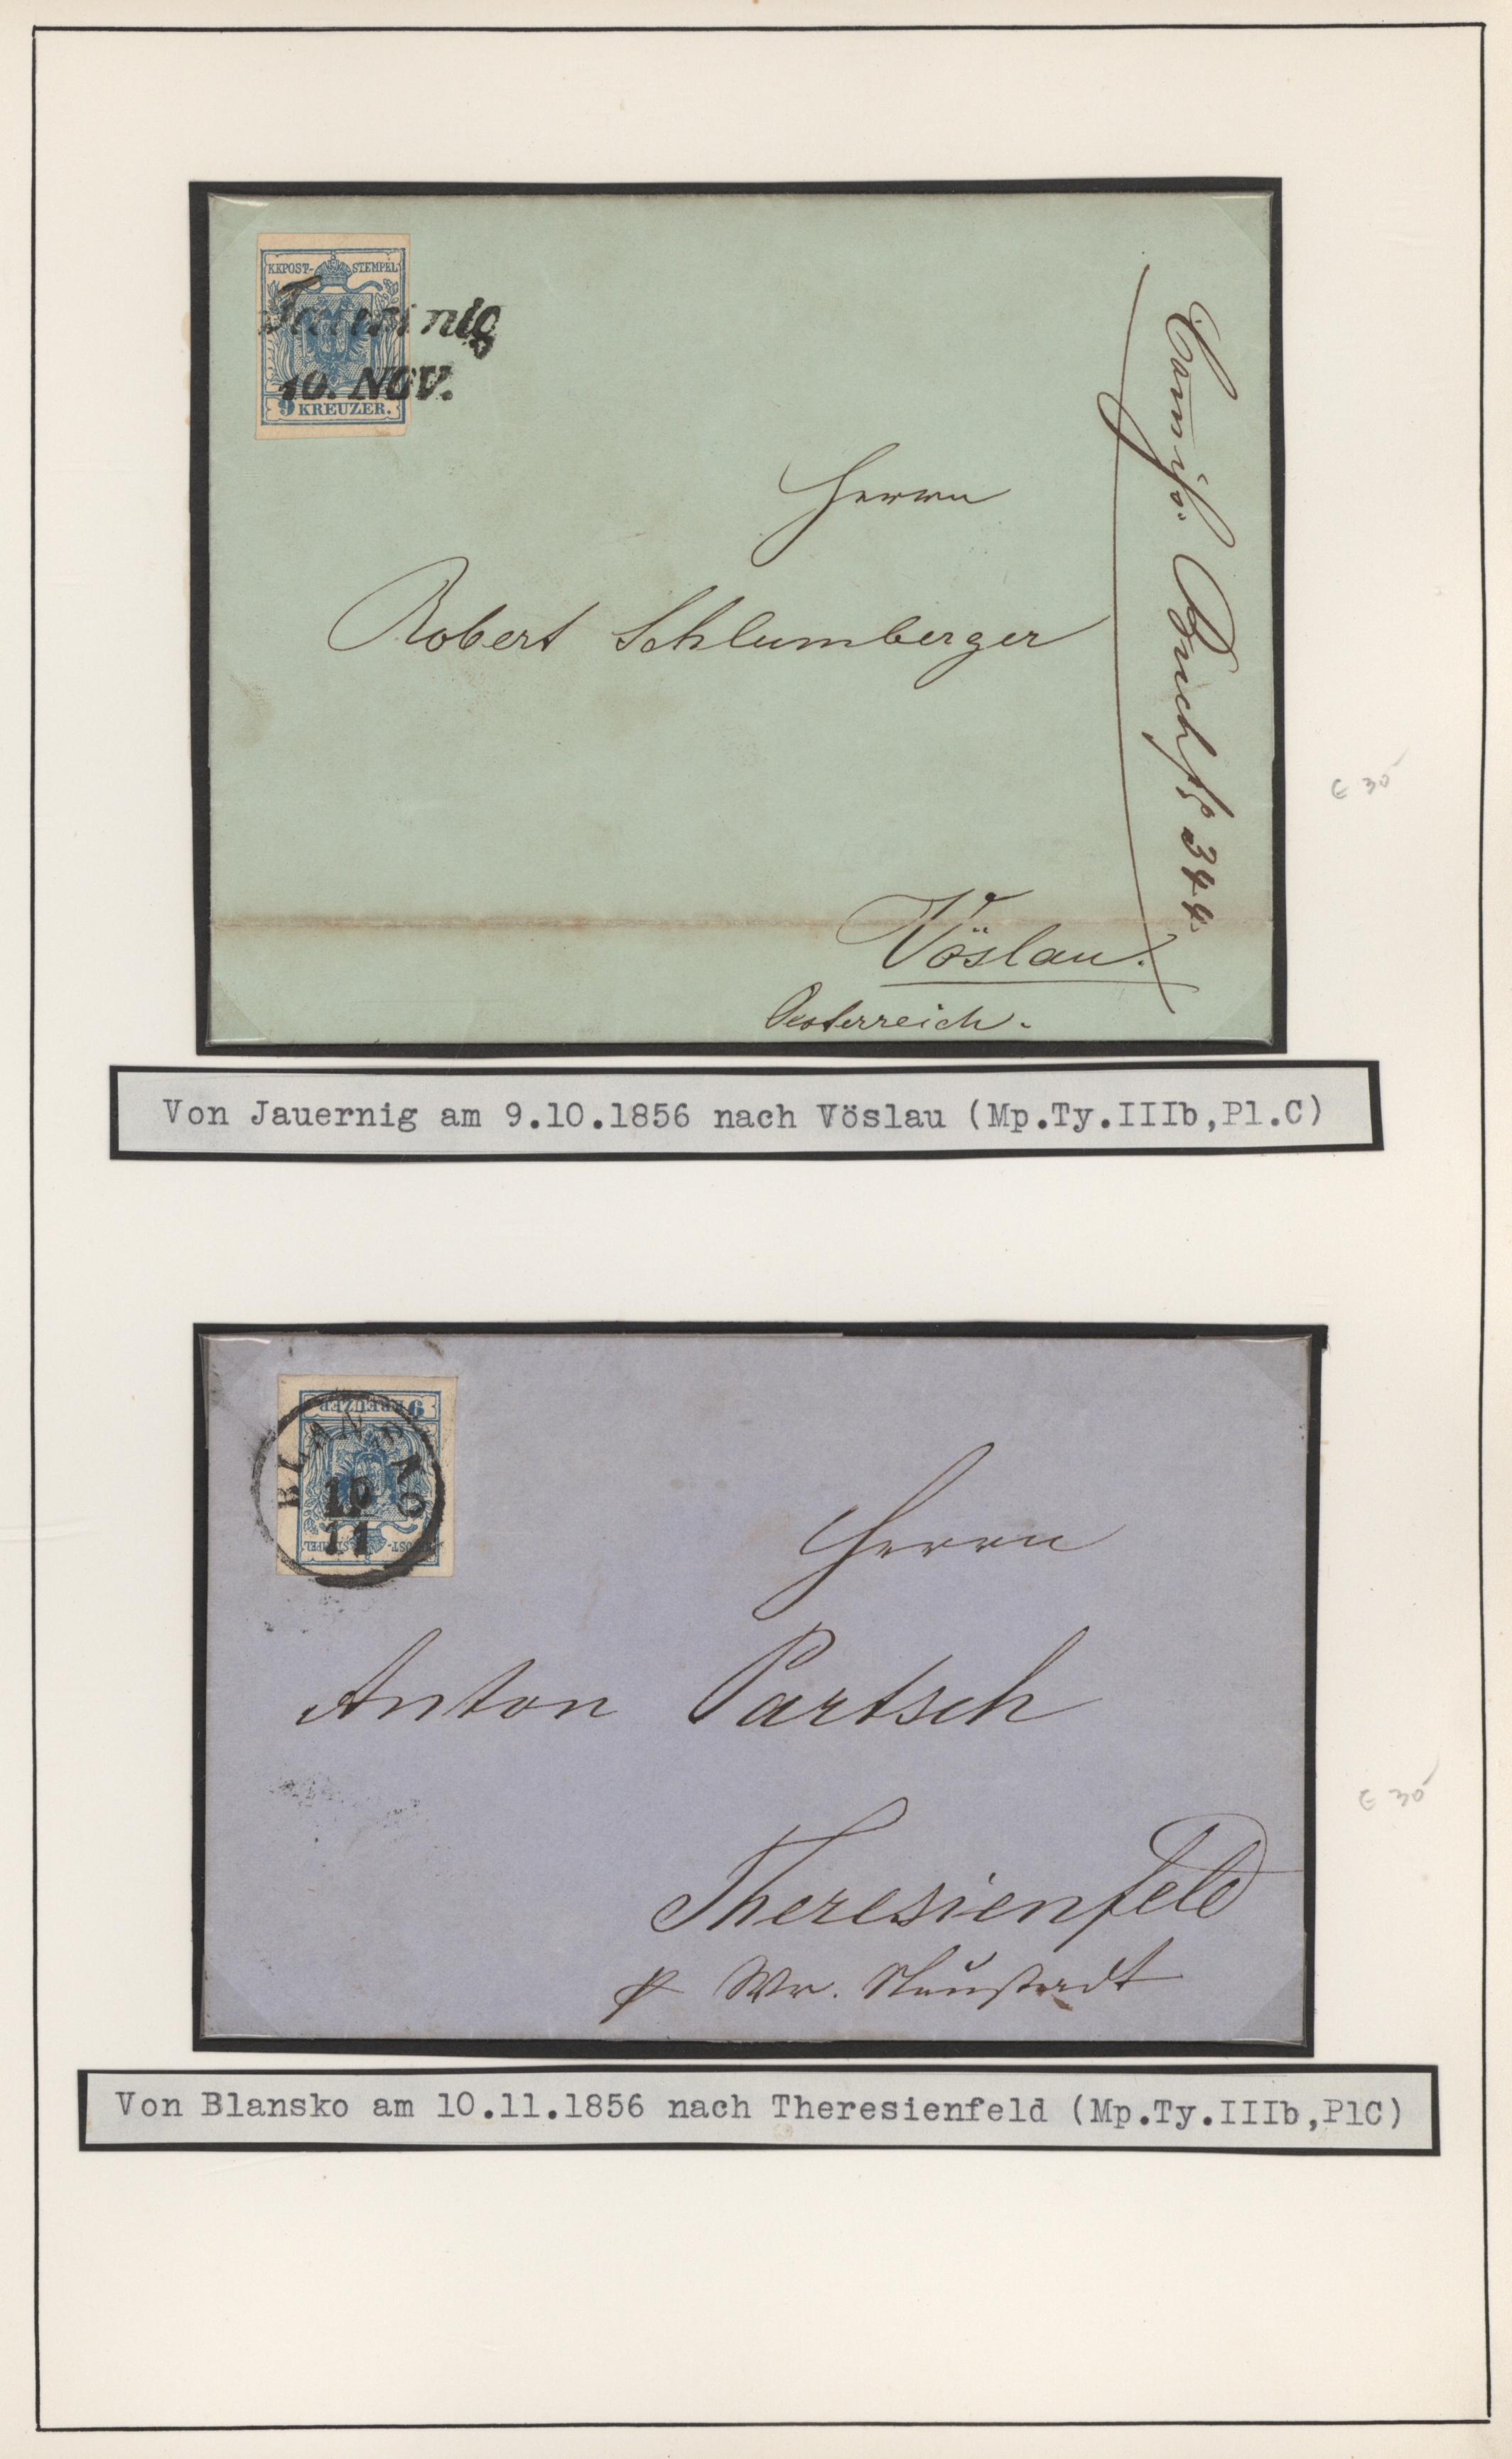 KKPOST-STEMPEL
Jauernig
10. NOV.
9 KREUZER.
Herrn
Robert Schlumberger
Vöslau.
Oesterreich.
344.
€ 30
Von Jauernig am 9.10.1856 nach Vöslau (Mp.Ty.IIIb,Pl.C)
9 KREUZER
BLANSKO
10
11
KKPOST-STEMPEL
Herrn
Anton Partsch
Theresienfeld
p Wr. Neustadt
€ 30
Von Blansko am 10.11.1856 nach Theresienfeld (Mp.Ty.IIIb,PlC)